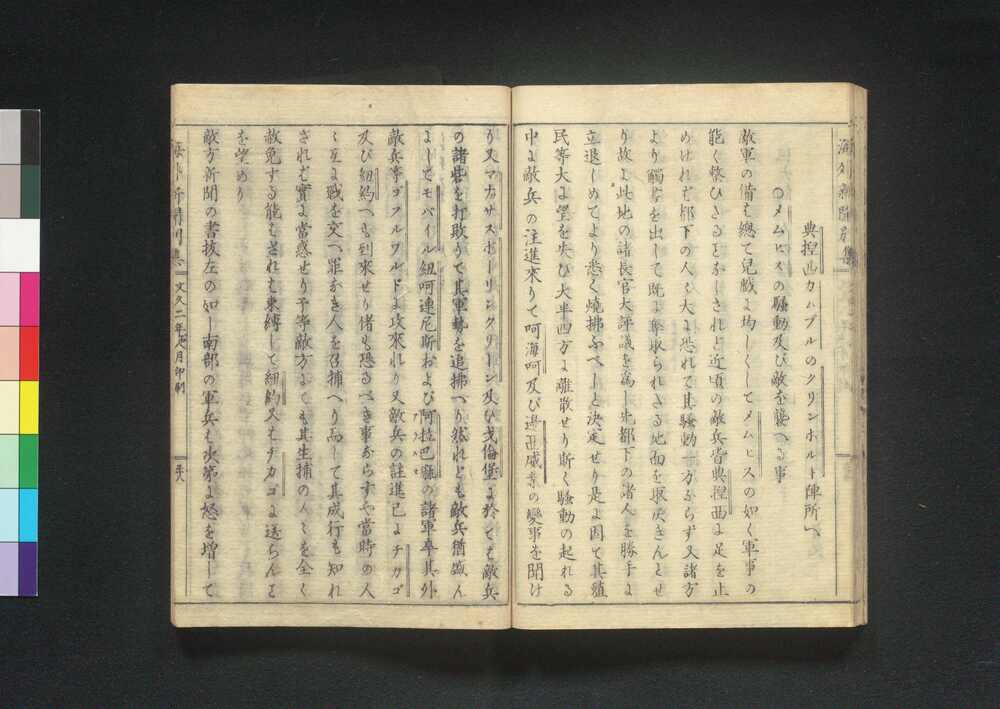 海外新聞別集
典捏西カムプルのクリンホルト陣所へ
○メムヒスの騒動及び敵を襲へる事
敵軍の備も總て兒戯に均しくしてメムヒスの如く軍事の
能く整ひたるとなしされと近頃の敵兵皆典捏西に足を止
めけれど都下の人々大に恐れて其騒動一方ならず又諸方
より觸書を出して既に奪取られたる地面を取戻さんとせ
り故に此地の諸長官大評議を爲し先都下の諸人を勝手に
立退しめてより悉く燒拂ふべしと決定せり是に因て其殖
民等大に望を失ひ大半四方に離散せり斯く騒動の起れる
中に敵兵の注進來りて呵海呵及び
の變事を聞け
り又マナサスボーリンクリーン及び戈倫堡に於ても敵兵
の諸砦を打敗りて其軍勢を追拂へり然れとも敵兵猶盛ん
よしてモバイル紐呵連尼斯および阿拉巴麻の諸軍卒其外
敵兵等ゴフルワルドに攻來れり又敵兵の註進已にチカゴ
及び紐約へも到來せり偖も恐るべき事ならすや當時の人
々互に戰を交へ罪なき人を召捕へり而して其成行も知れ
されど實に當惑せり予等敵方にても其生捕の人々を全く
赦免する能はされど束縛して紐約又はチカゴに送らんと
を望めり
敵方新聞の書抜左の如し南部の軍兵も次第に怒を増して
海外新聞別集
文久二年
月印刷